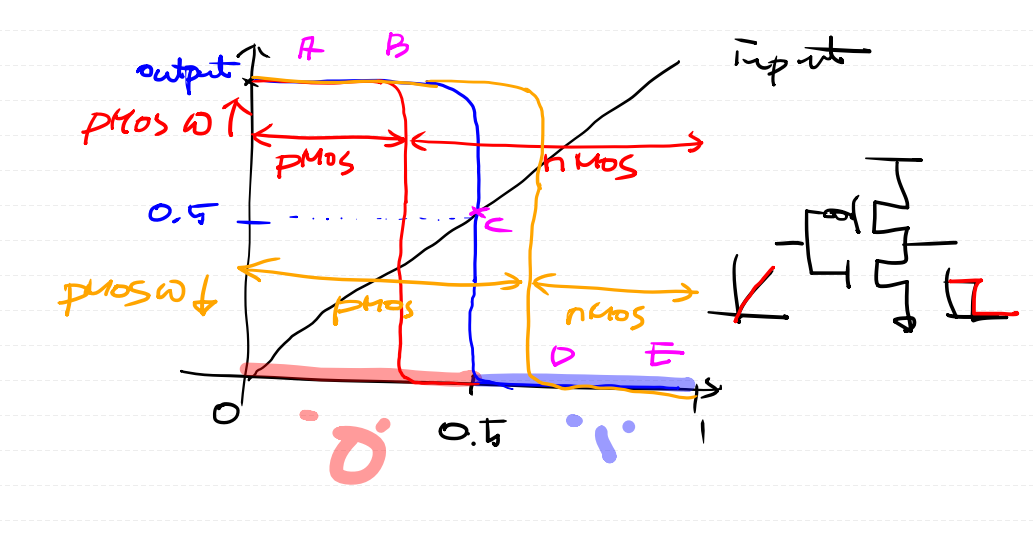 A B
input
output
pMOS ω ↑
pMOS
nMOS
0.5
C
pMOS ω ↓
pMOS
nMOS
D E
0
0.5
1
"0"
"1"